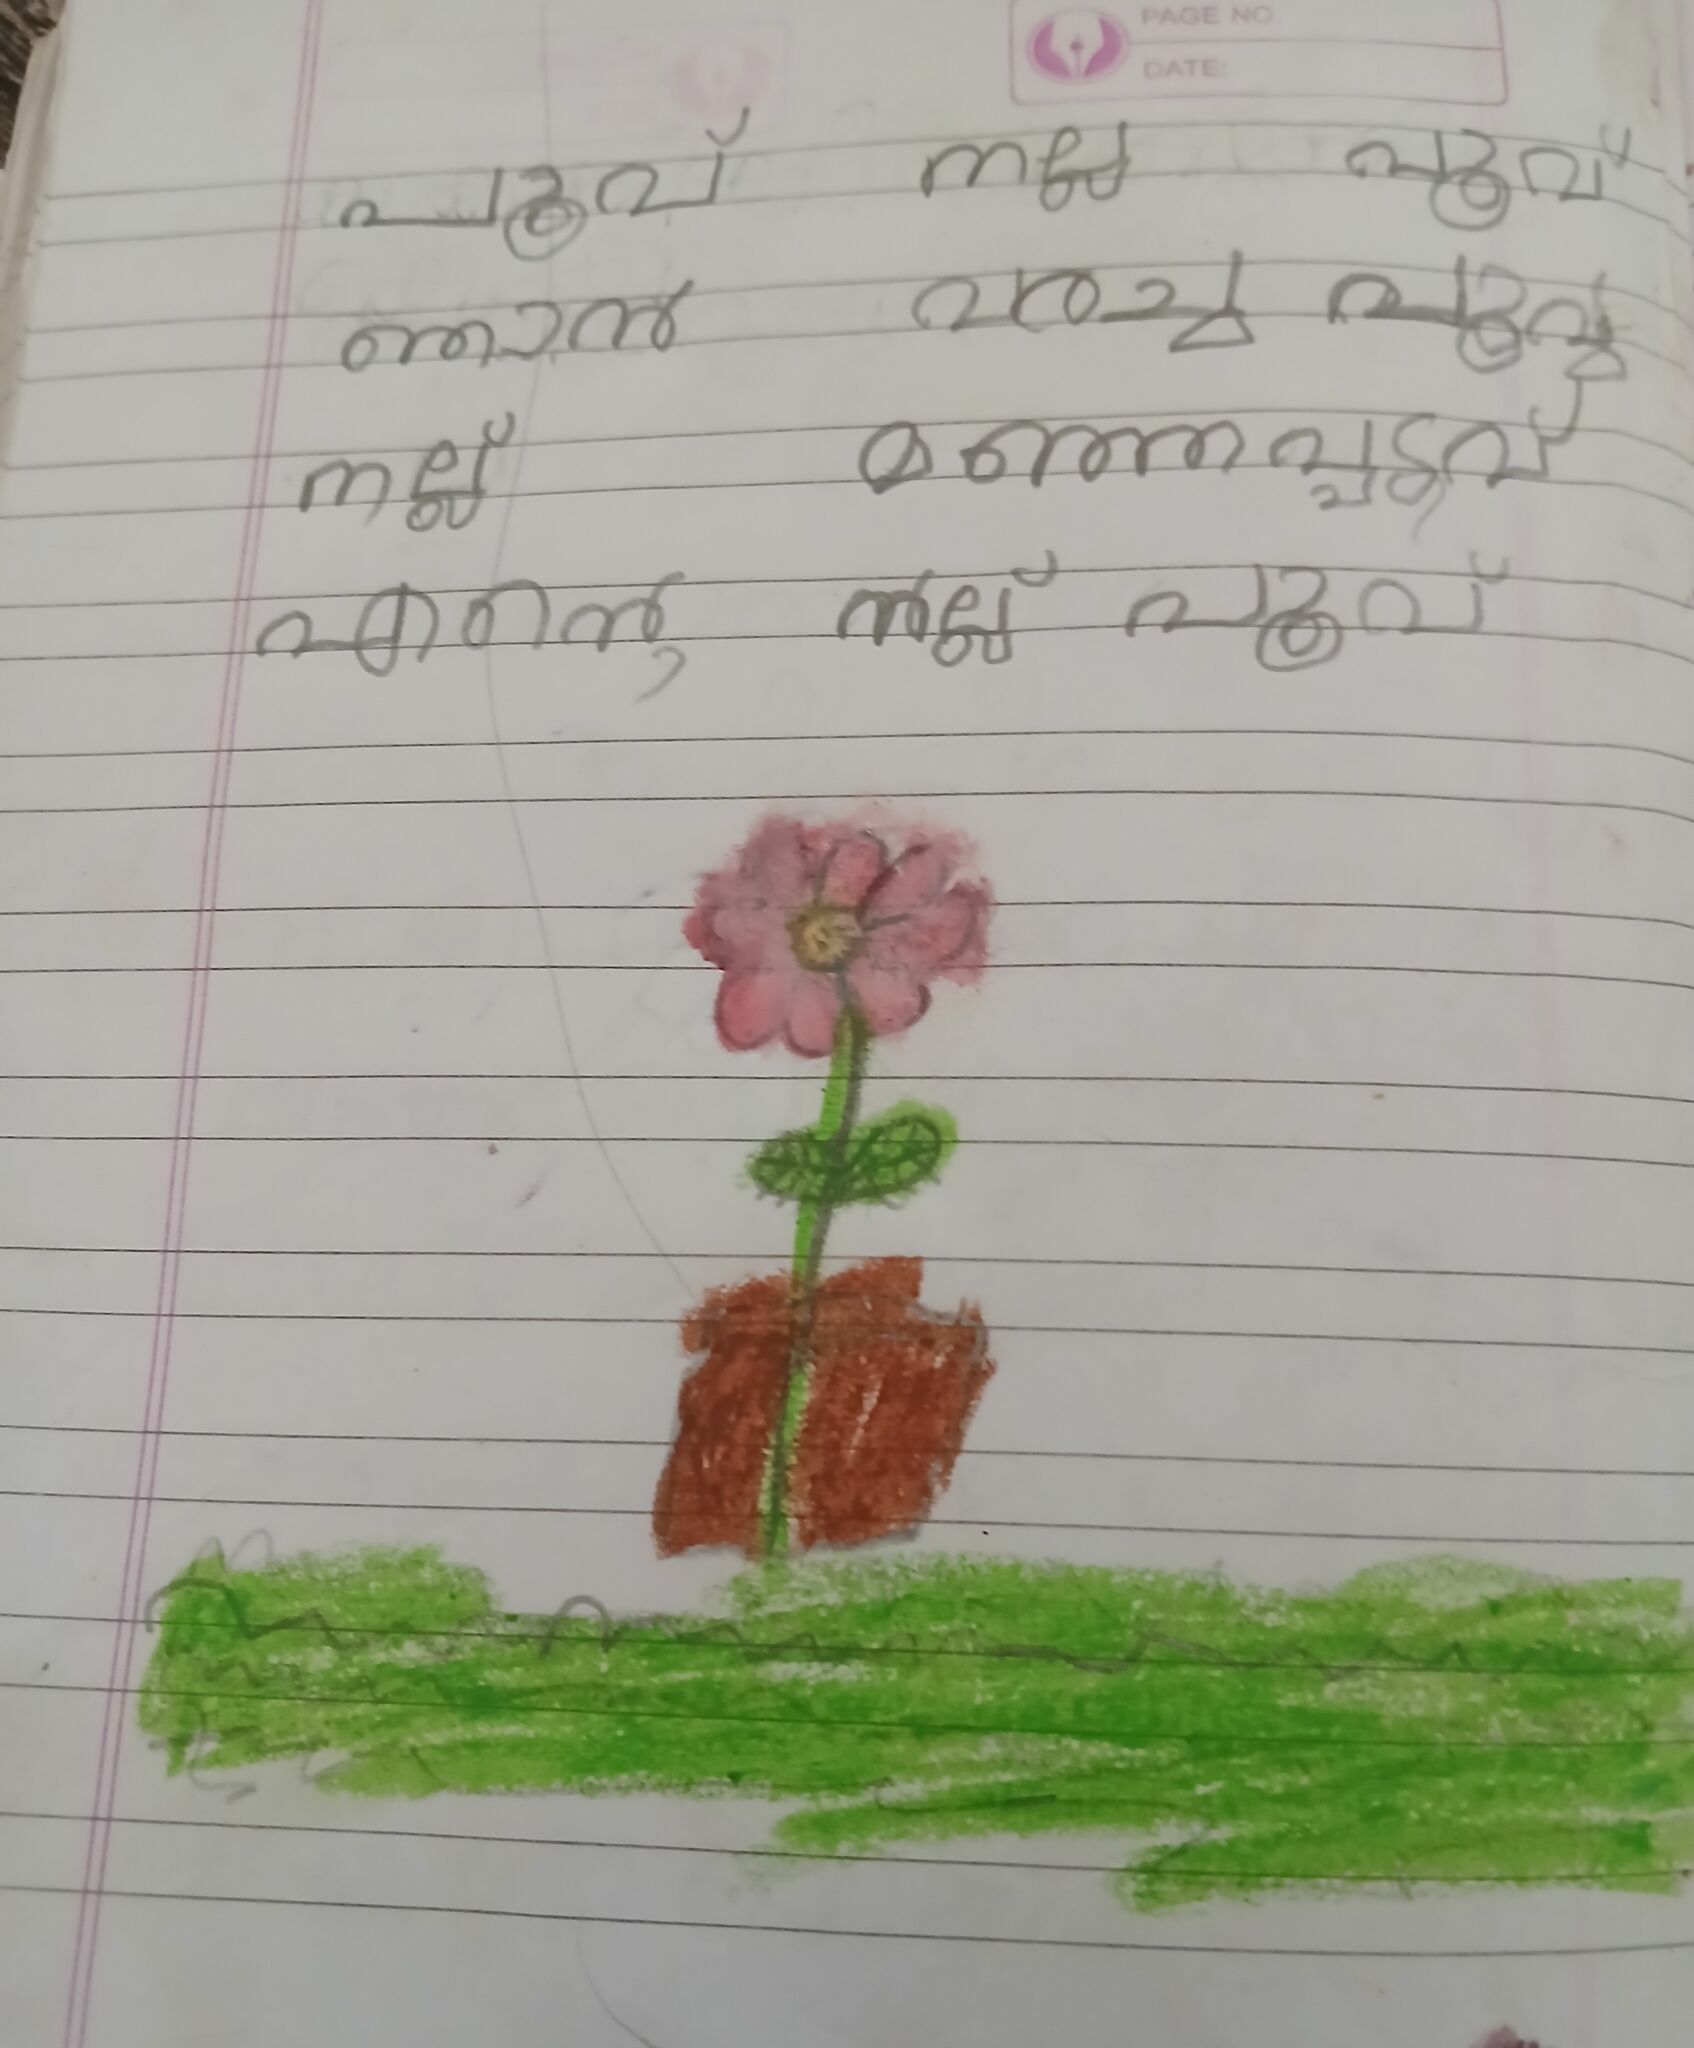 PAGE NO.
DATE:
പൂവ് നല്ല പൂവ്
ഞാൻ വരച്ച പൂവ്
നല്ല് മഞ്ഞപൂവ്
നല്ല് പൂവ്